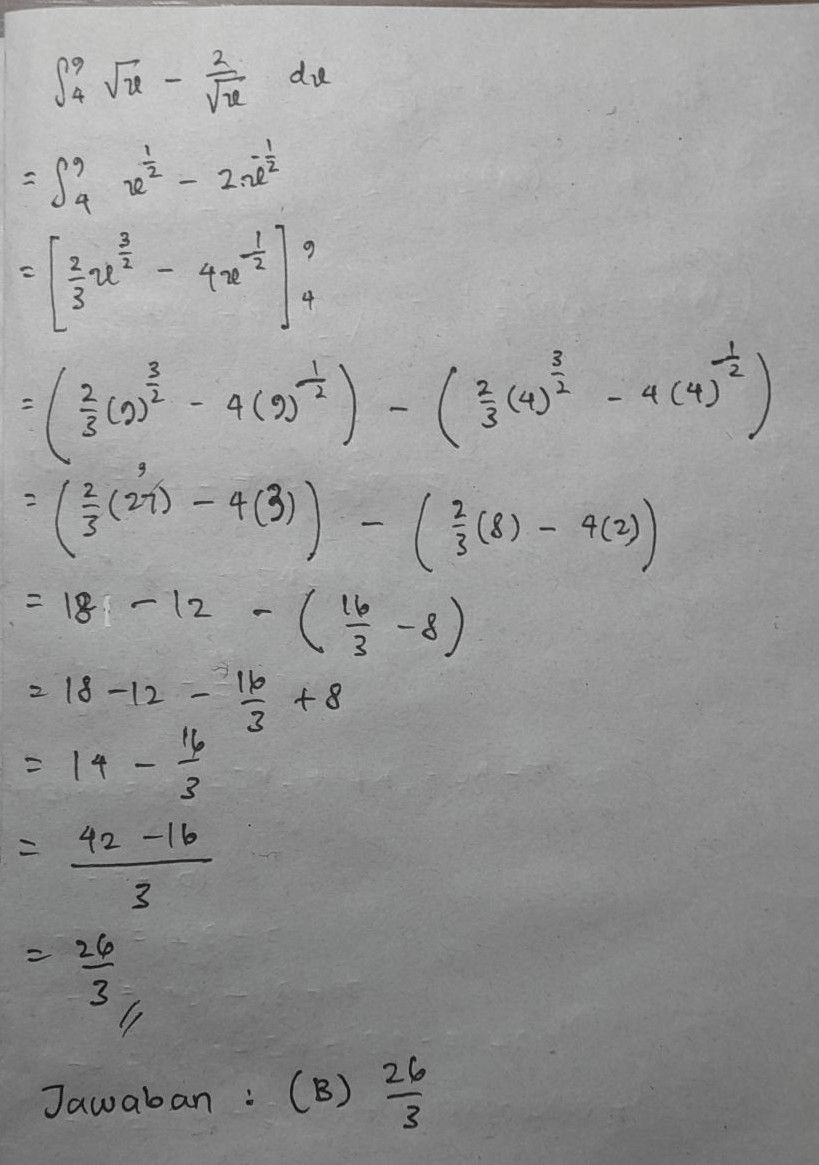 ∫₄⁹ √x - 2/√x dx
= ∫₄⁹ x^(1/2) - 2.x^(-1/2)
= [2/3 x^(3/2) - 4x^(1/2)]₄⁹
= (2/3 (9)^(3/2) - 4(9)^(1/2)) - (2/3 (4)^(3/2) - 4(4)^(1/2))
= (2/3 (27) 9 - 4(3)) - (2/3 (8) - 4(2))
= 18 - 12 - (16/3 - 8)
= 18 - 12 - 16/3 + 8
= 14 - 16/3
= (42 - 16)/3
= 26/3 //
Jawaban : (B) 26/3